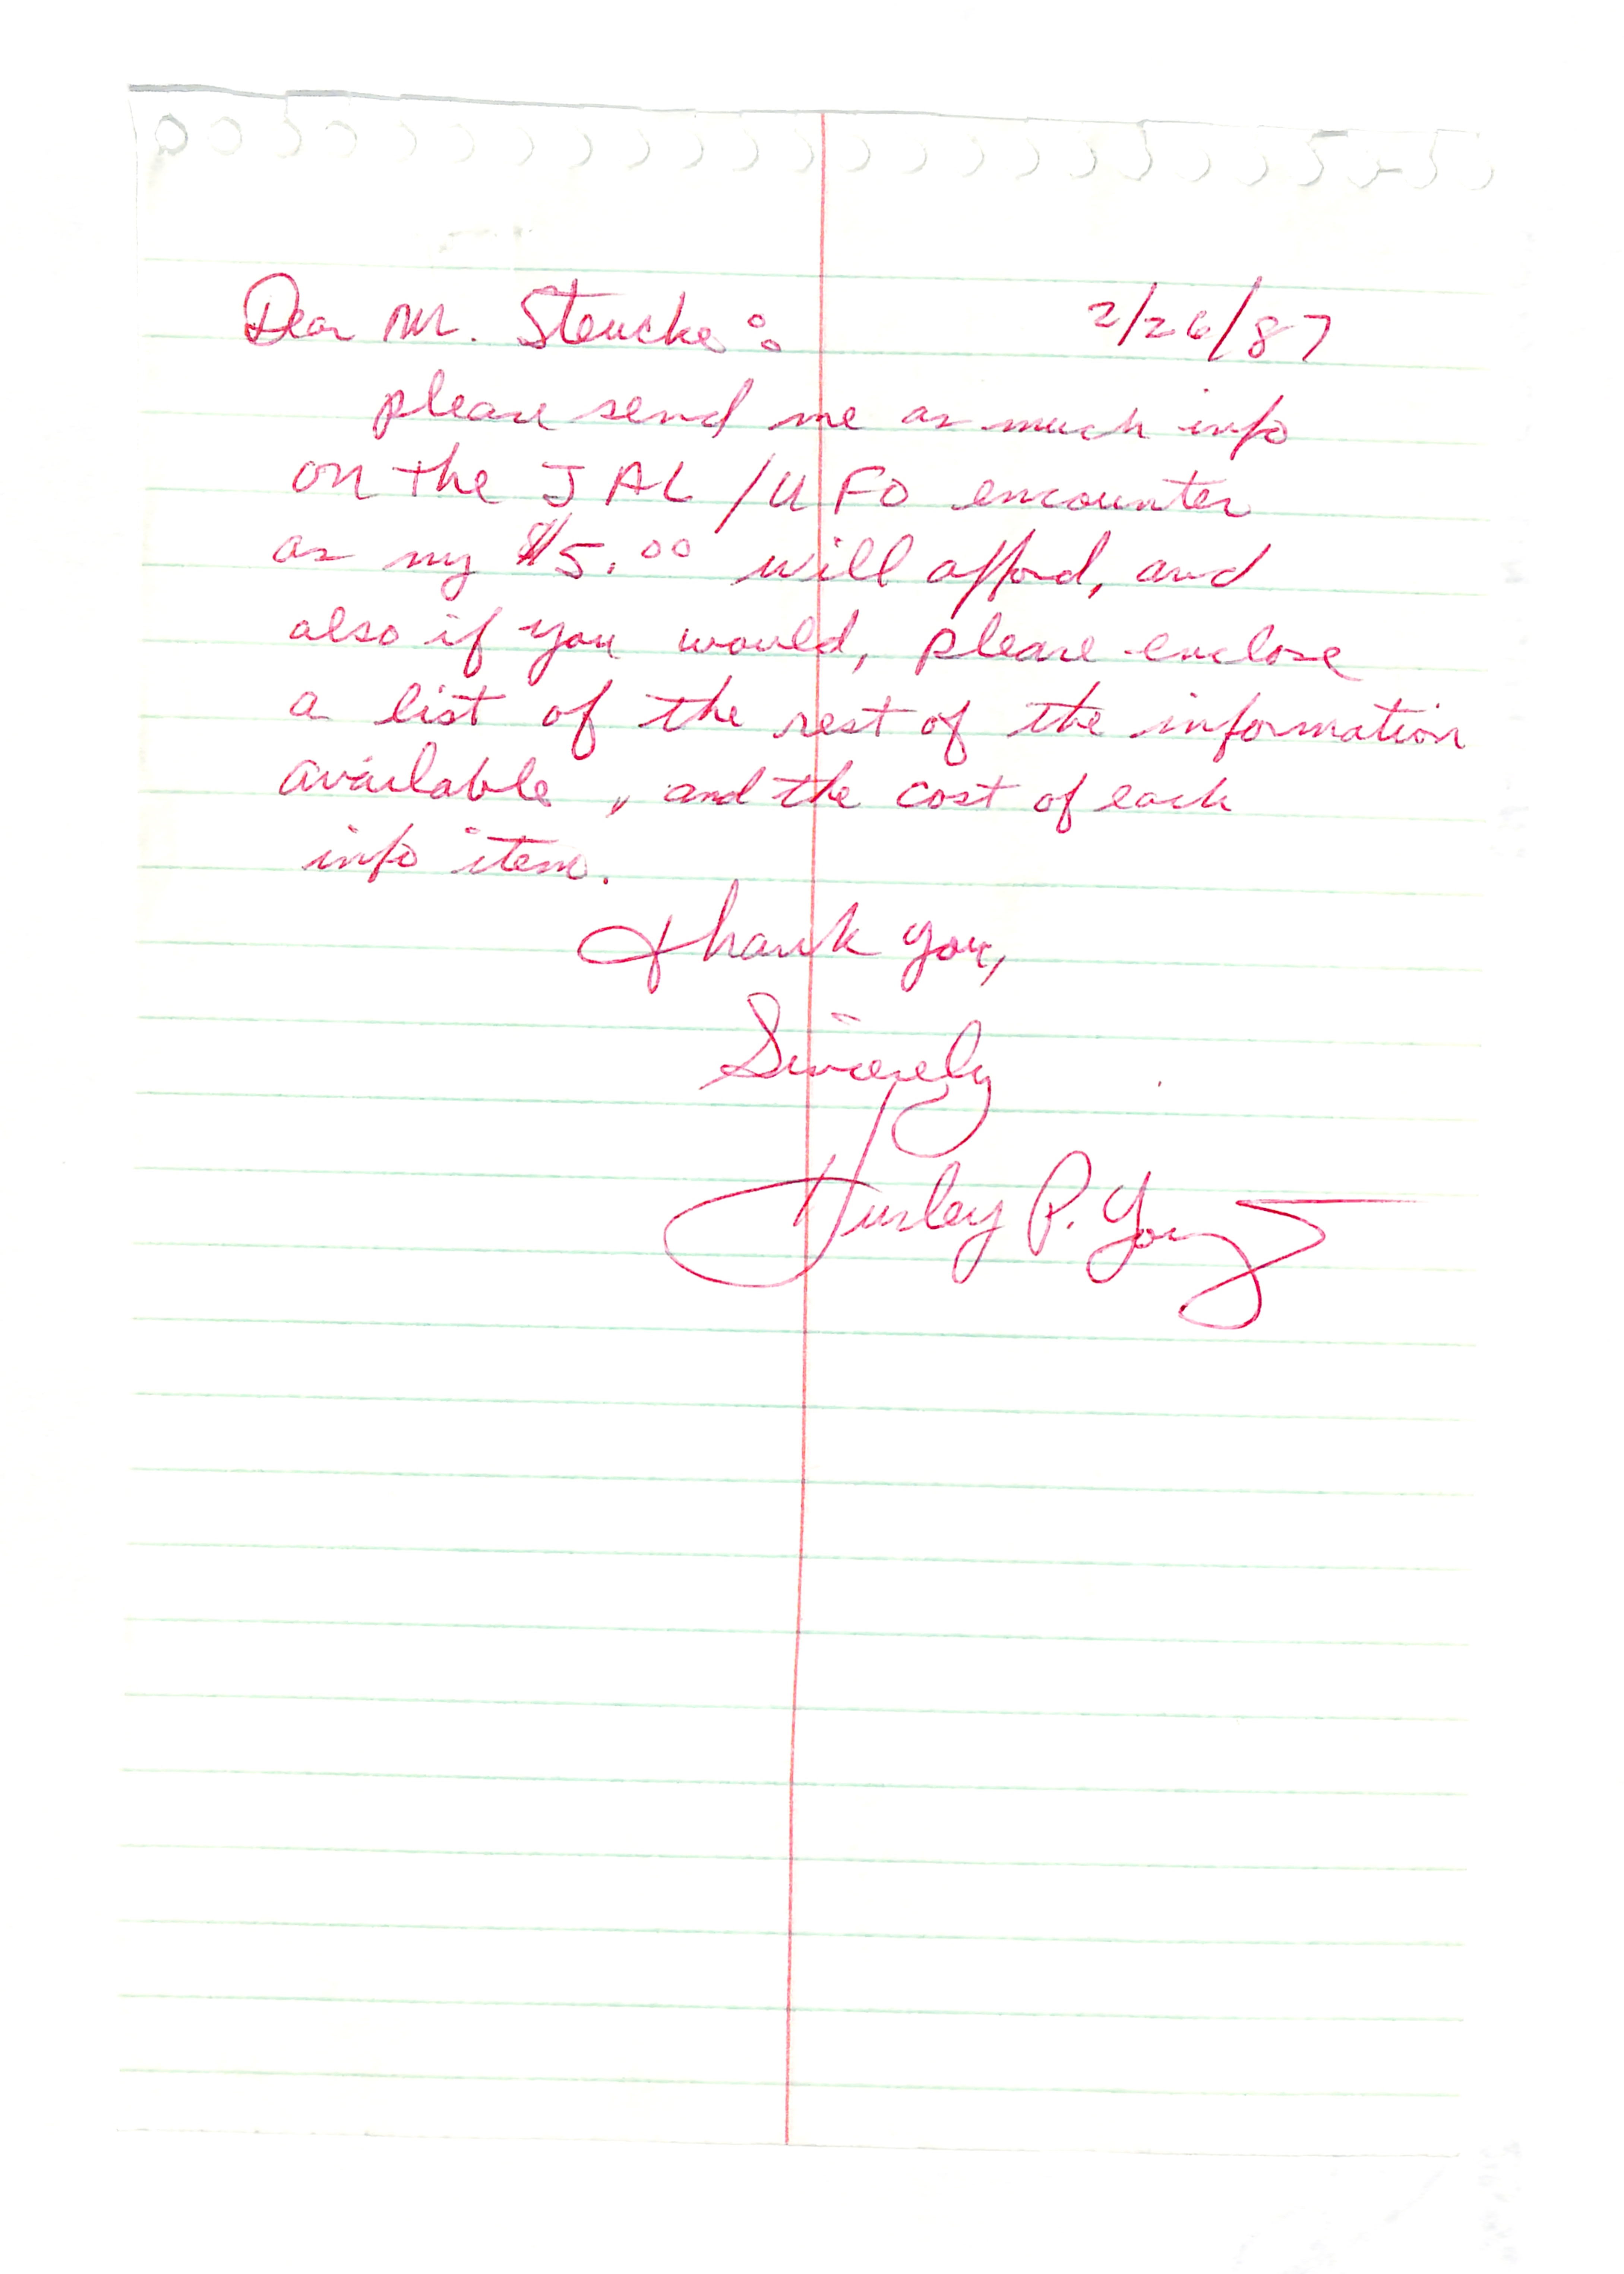 Dear Mr. Steucke: 2/26/87
please send me as much info
on the JAL/UFO encounter
as my $5.00 will afford, and
also if you would, please enclose
a list of the rest of the information
available, and the cost of each
info item.
Thank you,
Sincerely
P. Young